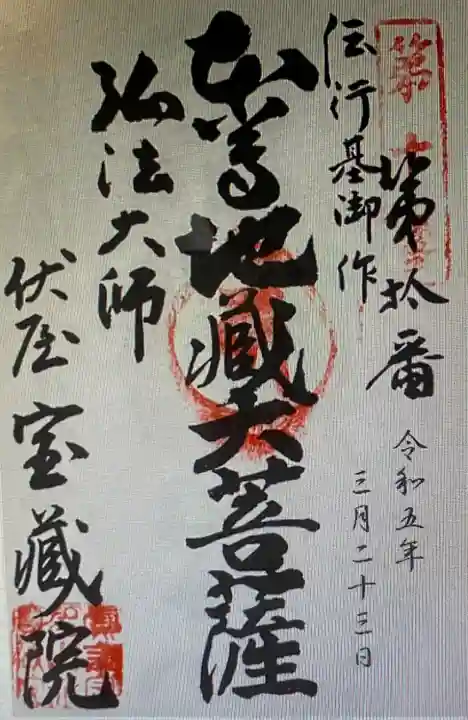 第拾番
令和五年
三月二十三日
伝行基御作
本尊地蔵大菩薩
弘法大師
伏屋宝蔵院